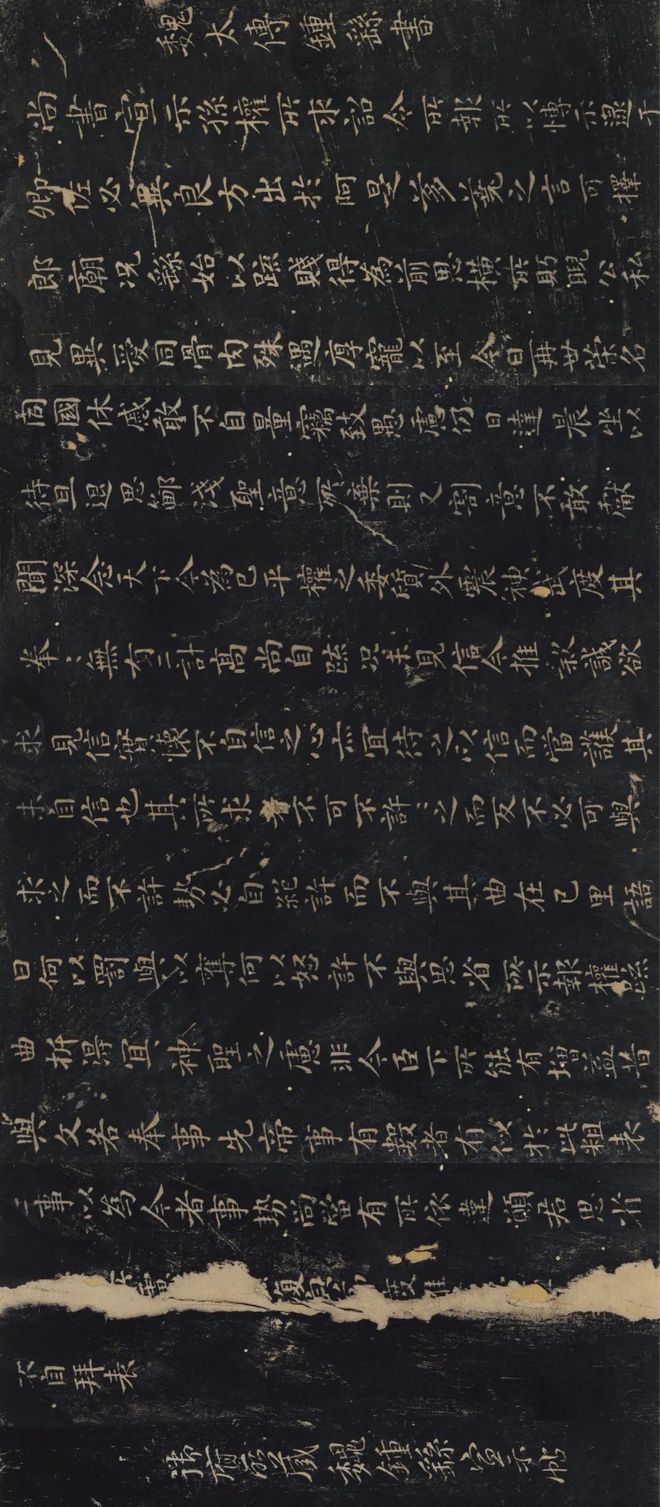 魏太傅鍾繇書
尚書宣示孫權所求詔令所報所以博示逮于
卿佐必冀良方出於阿是芻蕘之言可擇
郎廟況繇始以疏賤得為前恩橫所眄睨公私
見異愛同骨肉殊遇厚寵以至今日再世榮名
同國休慼敢不自量竊致愚慮仍日達晨坐以
待旦退思鄙淺聖意所棄則又割意不敢獻
聞深念天下今為已平權之委質外震神武度其
拳〻無有二計高尚自疏況未見信今推款誠欲
求見信實懷不自信之心亦宜待之以信而當護其
未自信也其所求者不可不許〻之而反不必可與
求之而不許勢必自絕許而不與其曲在己里語
曰何以罰與以奪何以怒許不與思省所示報權疏
曲折得宜神聖之慮非今臣下所能有增益昔
與文若奉事先帝事有數者有似於此粗表
二事以為今者事勢尚當有所依違願君思省
不自拜表
所藏魏鍾繇宣示帖